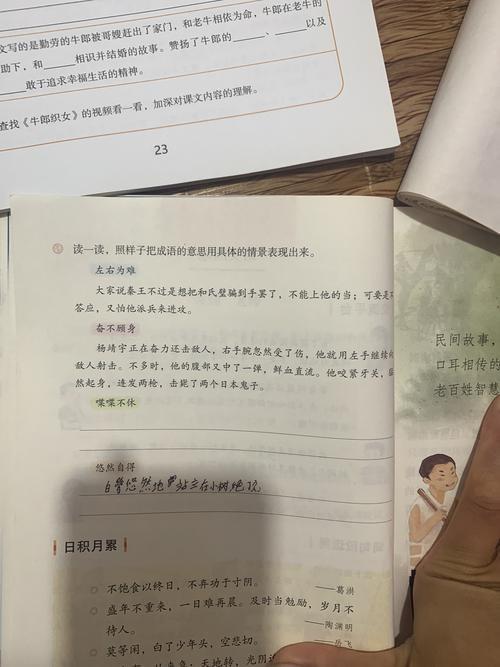 文写的是勤劳的牛郎被哥嫂赶出了家门，和老牛相依为命，牛郎在老牛的
助下，和______相识并结婚的故事。赞扬了牛郎的______、______以及
______敢于追求幸福生活的精神。
查找《牛郎织女》的视频看一看，加深对课文内容的理解。
23
读一读，照样子把成语的意思用具体的情景表现出来。
左右为难
大家说秦王不过是想把和氏璧骗到手罢了，不能上他的当；可要是不
答应，又怕他派兵来进攻。
奋不顾身
杨靖宇正在奋力还击敌人，右手腕忽然受了伤，他就用左手继续向
敌人射击。不多时，他的腹部又中了一弹，鲜血直流。他咬紧牙关，
然起身，连发两枪，击毙了两个日本鬼子。
喋喋不休
悠然自得
悠然地 站立在小树
日积月累
不饱食以终日，不弃功于寸阴。
——葛洪
盛年不重来，一日难再晨。及时当勉励，岁月不
待人。
——陶渊明
莫等闲，白了少年头，空悲切。
——岳飞
天地转，光阴
民间故事，
口耳相传的
老百姓智慧